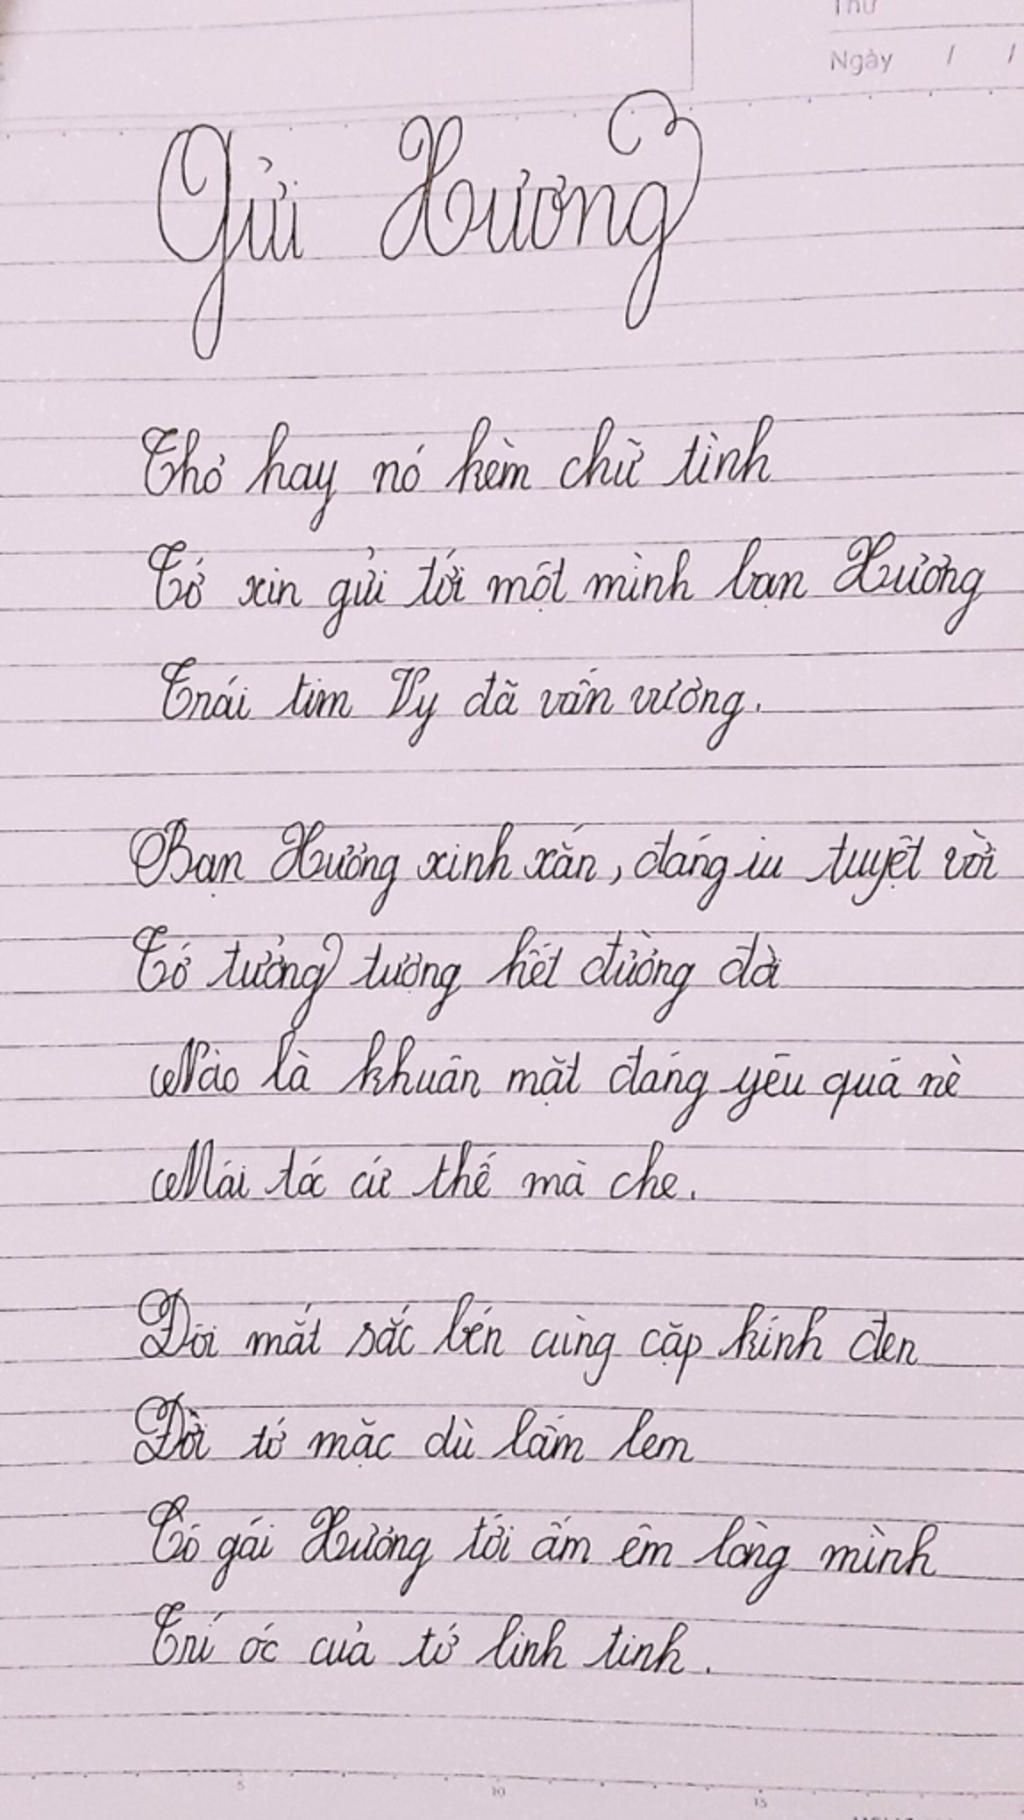 Thứ
Ngày / /
Gửi Hương
Thơ hay nó kèm chữ tình
Tớ xin gửi tới một mình bạn Hương
Trái tim Vy đã vấn vương.
Bạn Hương xinh xắn, đáng iu tuyệt vời
Tớ tưởng tượng hết đường đời
Nào là khuân mặt đáng yêu quá nè
Mái tóc cứ thế mà che.
Đôi mắt sắc bén cùng cặp kính đen
Đời tớ mặc dù lấm lem
Có gái Hương tới ấm êm lòng mình
Trí óc của tớ linh tinh.
5 10 15